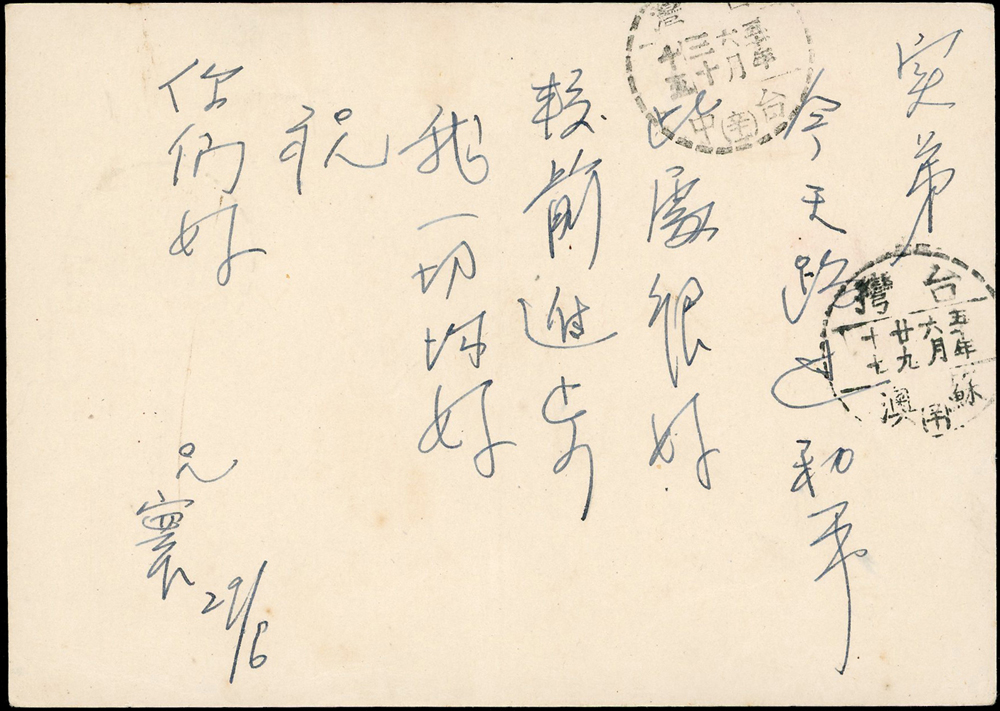 实弟
今天跑过勃军
此處很好
較前進步
我一切均好
祝
你們好
兄
寰 29/6
台灣
五十年
六月
三十
十五
台中
台灣
五十年
六月
廿九
十七
蘇澳